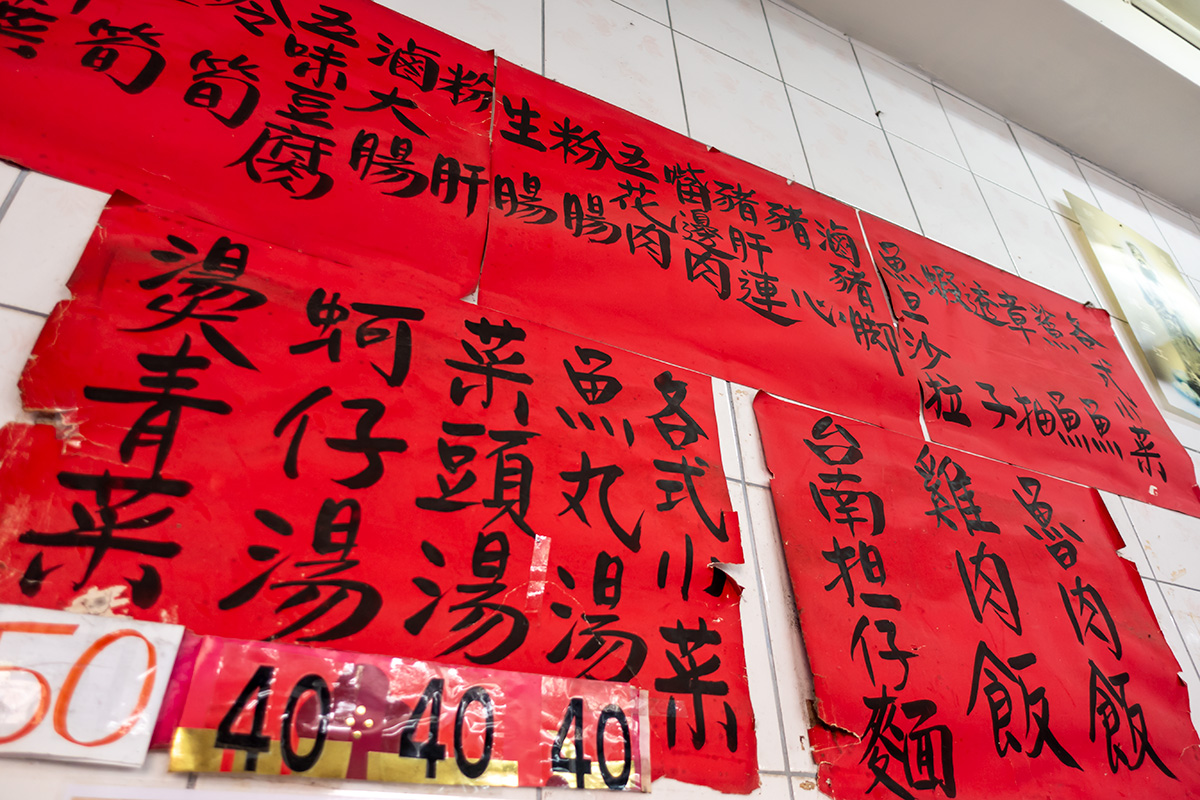 各式小菜
鯊魚
章魚
透抽
蝦子
魚旦沙啦
滷豬脚
豬心
豬肝連
嘴邊肉
五花肉
粉腸
生腸
粉肝
滷大腸
五味豆腐
冷筍
筍
魯肉飯
雞肉飯
台南担仔麵
各式小菜
魚丸湯
菜頭湯
蚵仔湯
燙青菜
40
40
40
50